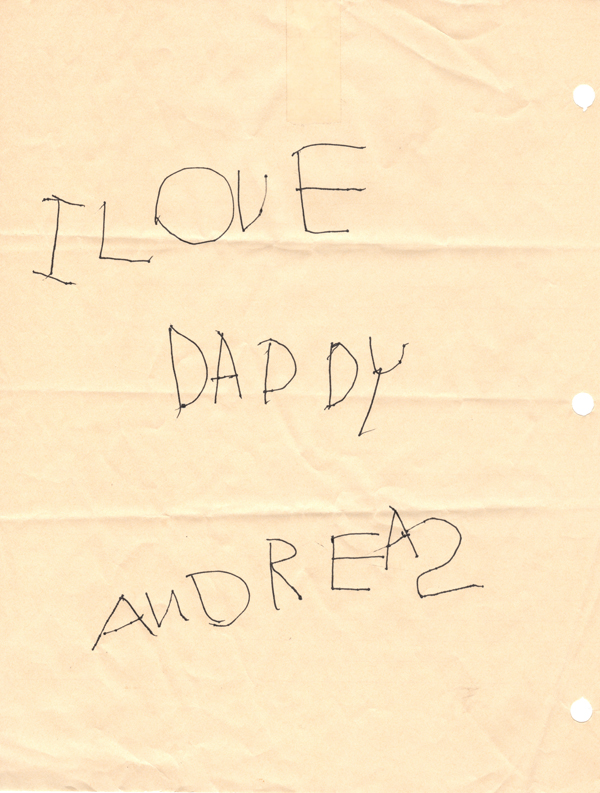 I LOVE
DADDY
ANDREAS